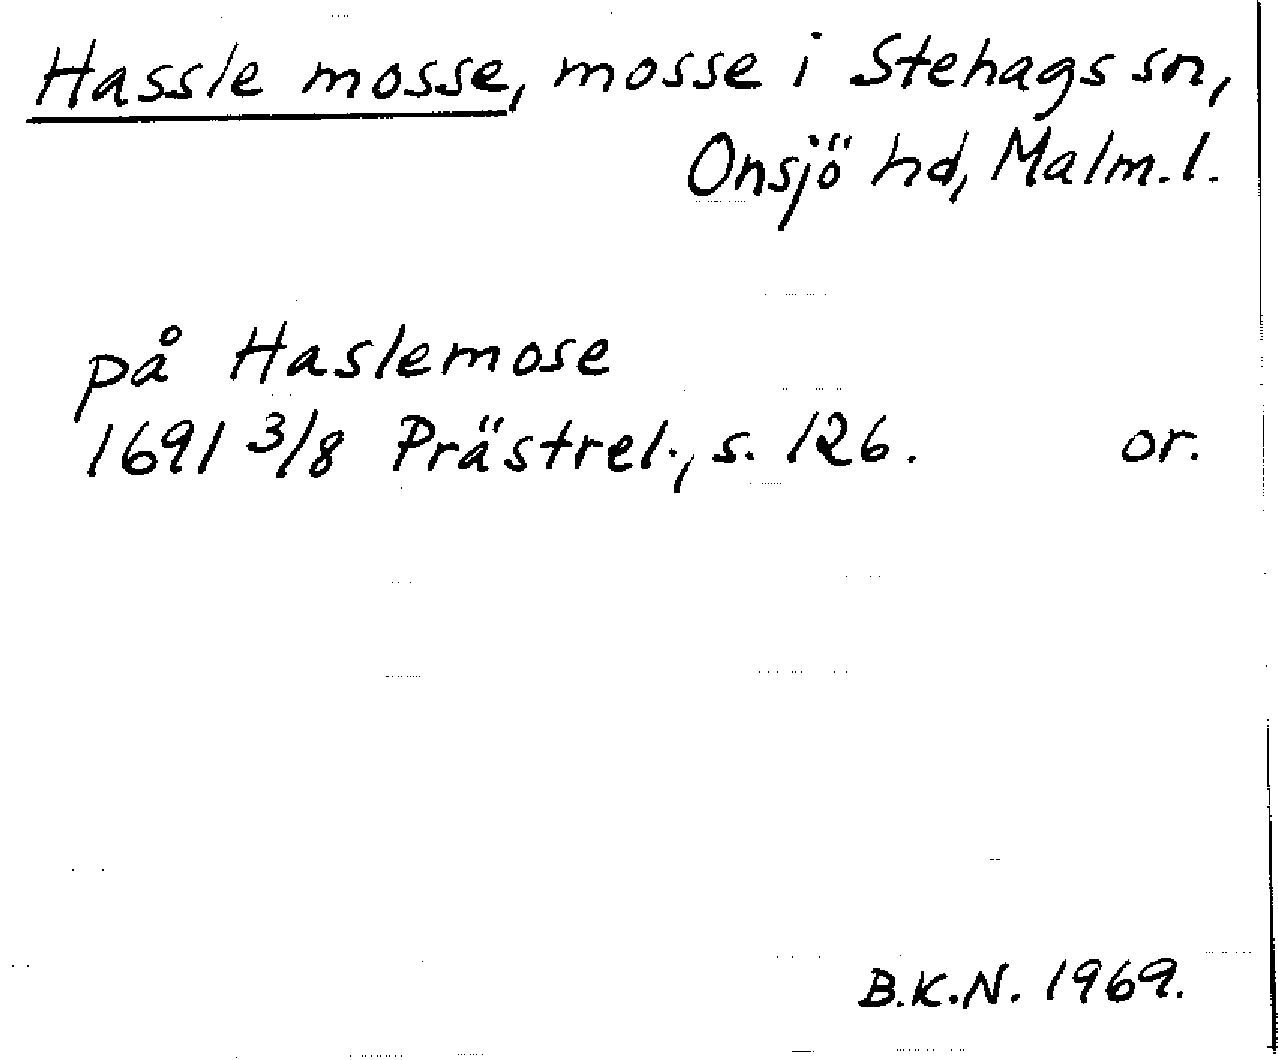 Hassle mosse, mosse i Stehags sn,
Onsjö hd, Malm.l.
på Haslemose
1691 3/8 Prästrel., s. 126. or.
B.K.N. 1969.